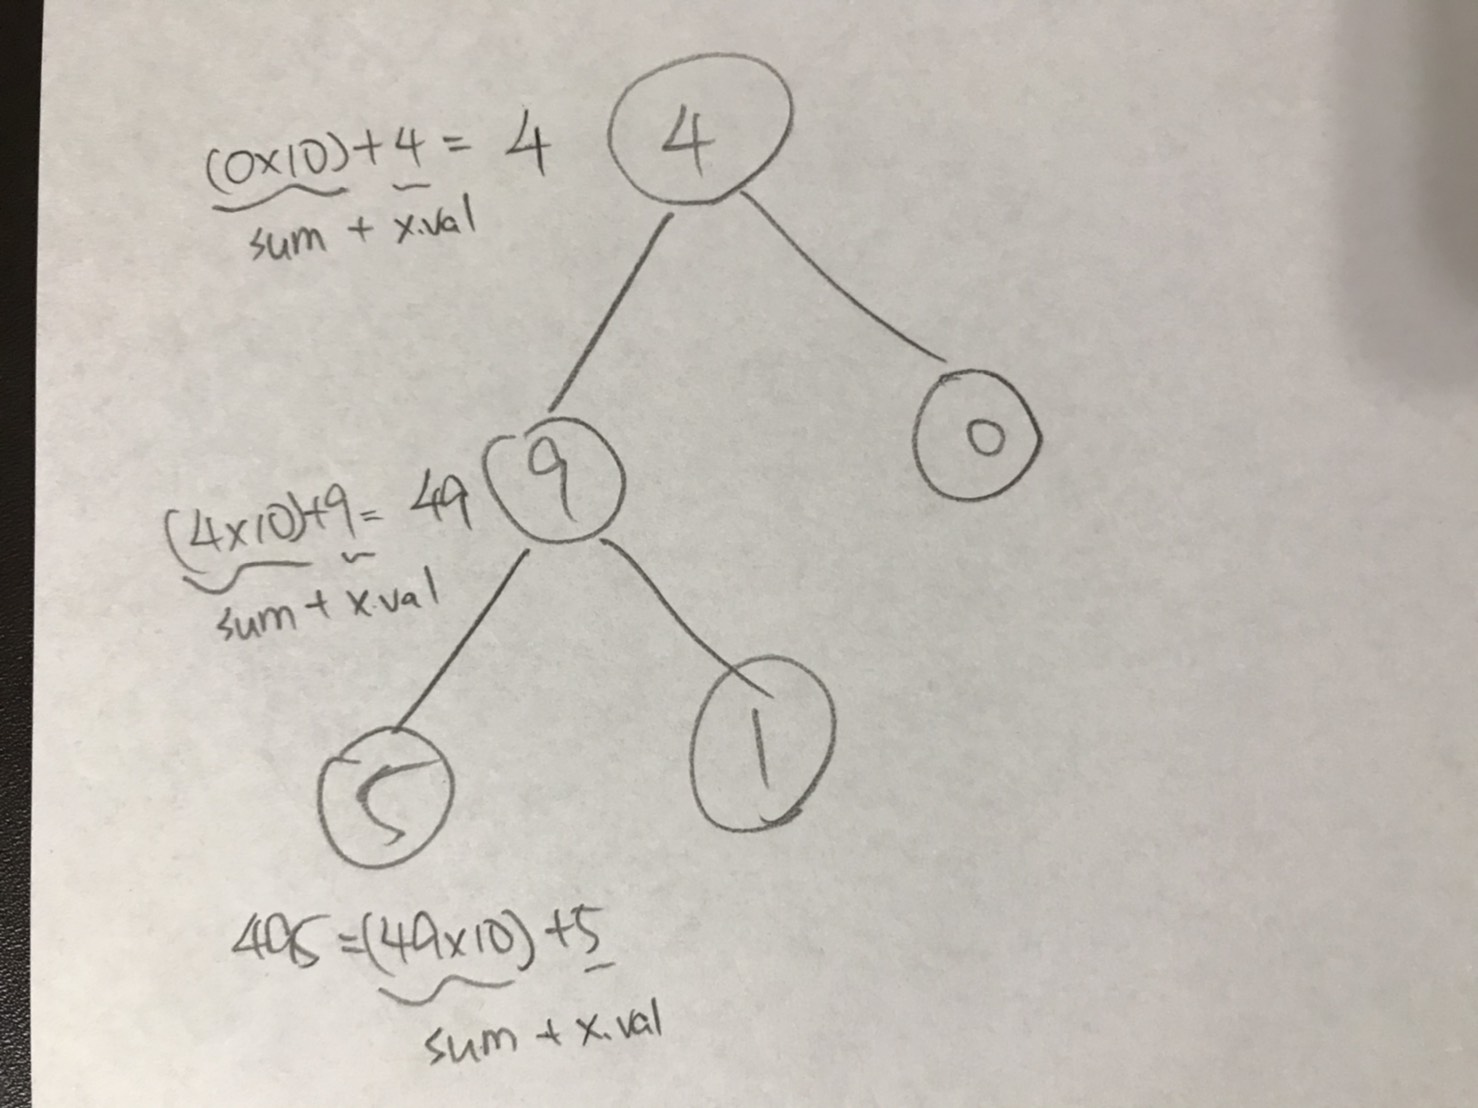 (0x10)+4= 4
4
sum + x.val
0
(4x10)+9= 49
9
sum + x.val
5
1
495=(49x10)+5
sum + x.val